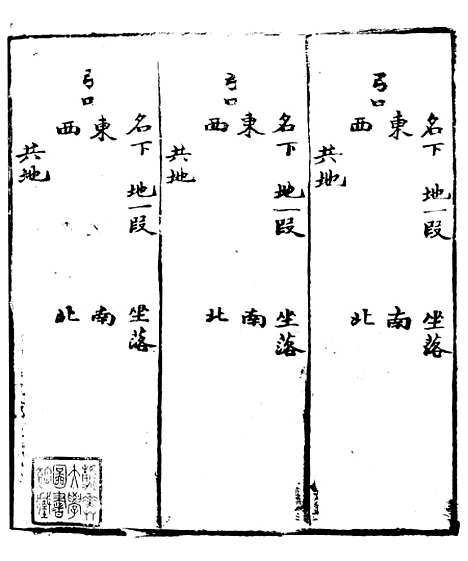 名下 地一段 坐落
東 南
西 北
弓口
共地
名下 地一段 坐落
東 南
西 北
弓口
共地
名下 地一段 坐落
東 南
西 北
弓口
共地
大學
圖書